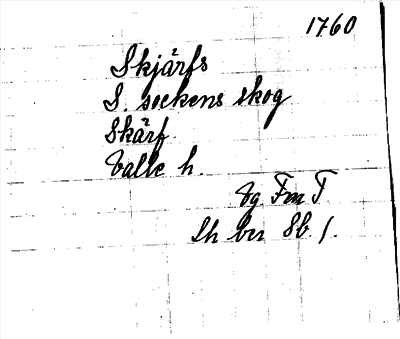 1760
Skjärfs
S. sockens skog
Skärf
Valle h.
Vg Fm T.
Lh ber 86 1.